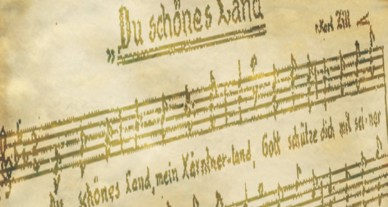 „Du schönes Land
Karl Zill
Du schönes Land, mein Kärntner-land, Gott schütze dich mit sei-ner